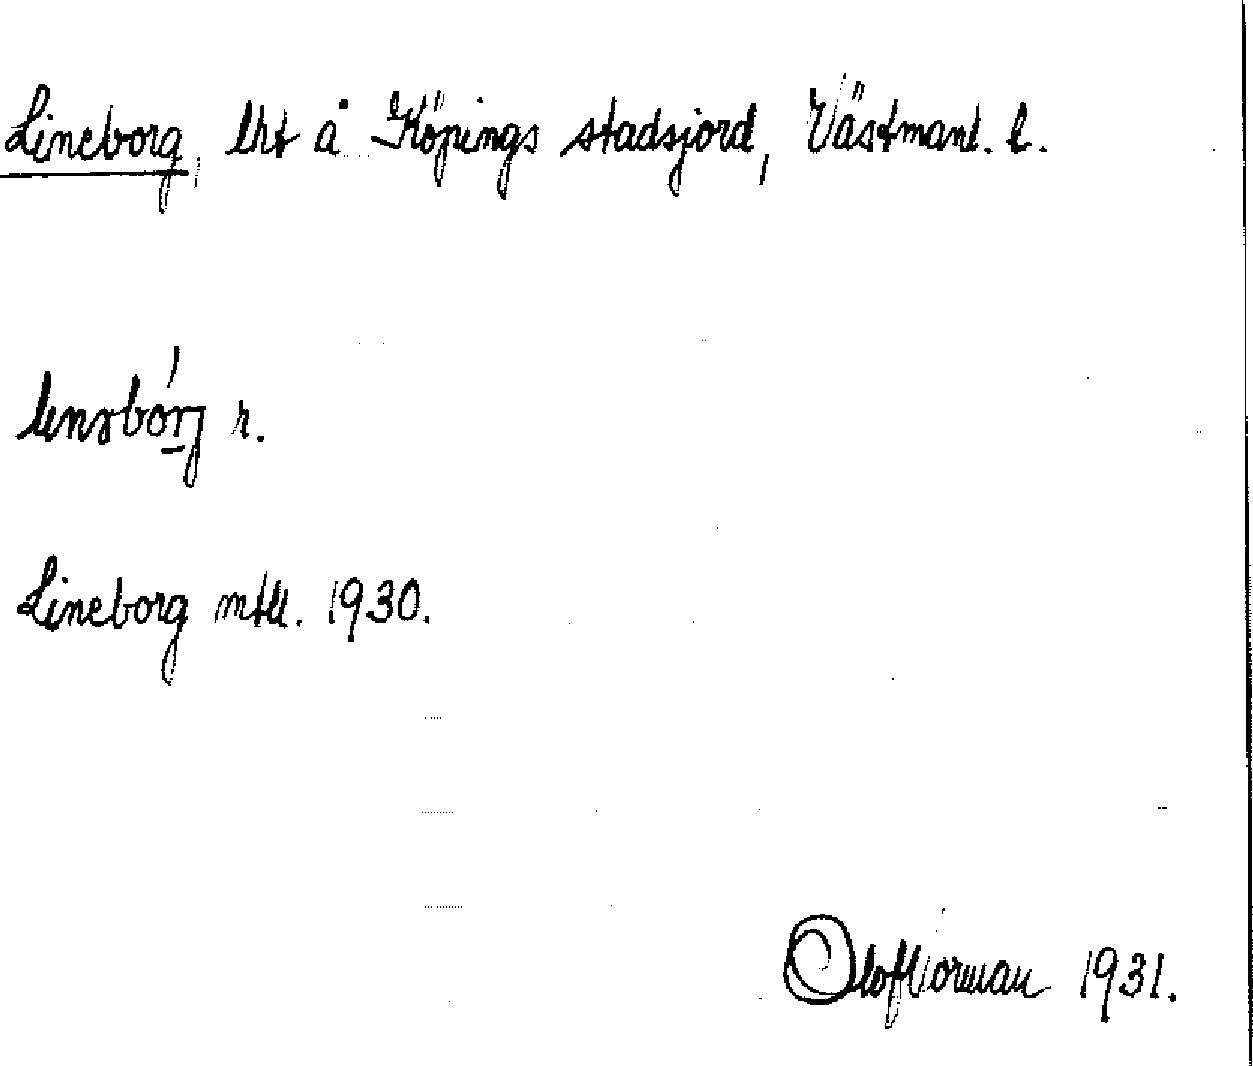 Lineborg, lht å Köpings stadsjord, Västmanl. l.
linəbórj r.
Lineborg mtl. 1930.
Olof Norman 1931.